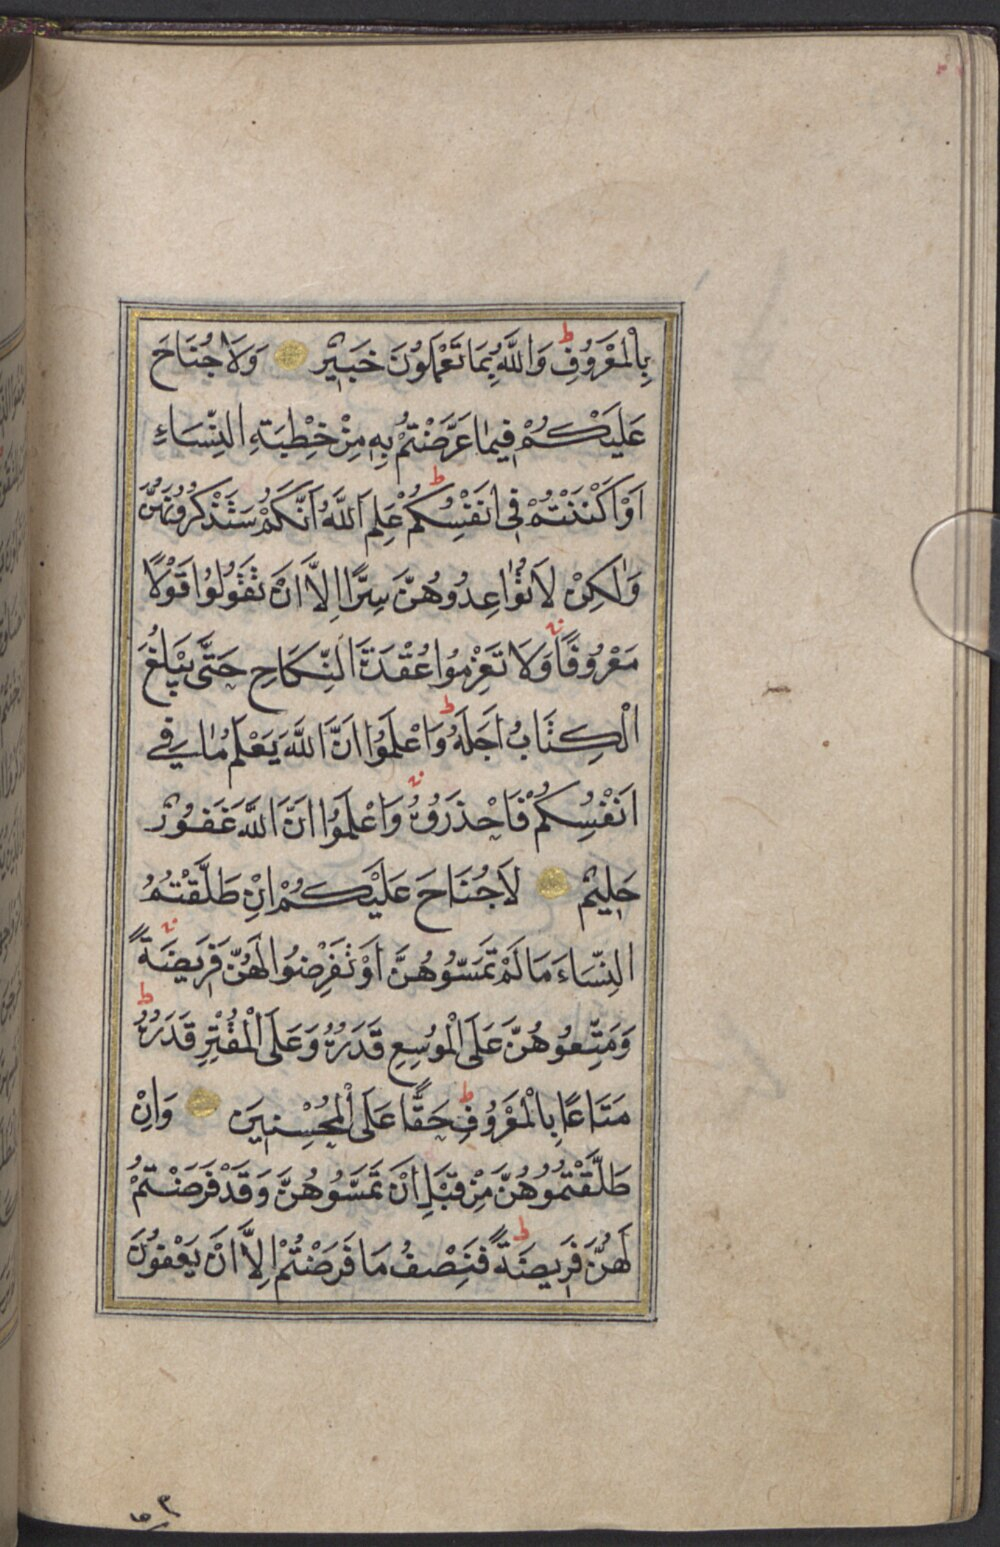 بِالْمَعْرُوفِ ط وَاللَّهُ بِمَا تَعْمَلُونَ خَبِيرٌ وَلَا جُنَاحَ
عَلَيْكُمْ فِيمَا عَرَّضْتُمْ بِهِ مِنْ خِطْبَةِ النِّسَاءِ
اَوْ اَكْنَنْتُمْ فِي اَنْفُسِكُمْ ط عَلِمَ اللَّهُ اَنَّكُمْ سَتَذْكُرُونَهُنَّ
وَلٰكِنْ لَا تُوَاعِدُوهُنَّ سِرًّا اِلَّا اَنْ تَقُولُوا قَوْلًا
مَعْرُوفًا وَلَا تَعْزِمُوا عُقْدَةَ النِّكَاحِ حَتَّى يَبْلُغَ
الْكِتَابُ اَجَلَهُ ط وَاعْلَمُوا اَنَّ اللَّهَ يَعْلَمُ مَا فِي
اَنْفُسِكُمْ فَاحْذَرُوهُ وَاعْلَمُوا اَنَّ اللَّهَ غَفُورٌ
حَلِيمٌ لَا جُنَاحَ عَلَيْكُمْ اِنْ طَلَّقْتُمُ
النِّسَاءَ مَا لَمْ تَمَسُّوهُنَّ اَوْ تَفْرِضُوا لَهُنَّ فَرِيضَةً
وَمَتِّعُوهُنَّ عَلَى الْمُوسِعِ قَدَرُهُ وَعَلَى الْمُقْتِرِ قَدَرُهُ ط
مَتَاعًا بِالْمَعْرُوفِ ط حَقًّا عَلَى الْمُحْسِنِينَ وَاِنْ
طَلَّقْتُمُوهُنَّ مِنْ قَبْلِ اَنْ تَمَسُّوهُنَّ وَقَدْ فَرَضْتُمْ
لَهُنَّ فَرِيضَةً ط فَنِصْفُ مَا فَرَضْتُمْ اِلَّا اَنْ يَعْفُونَ